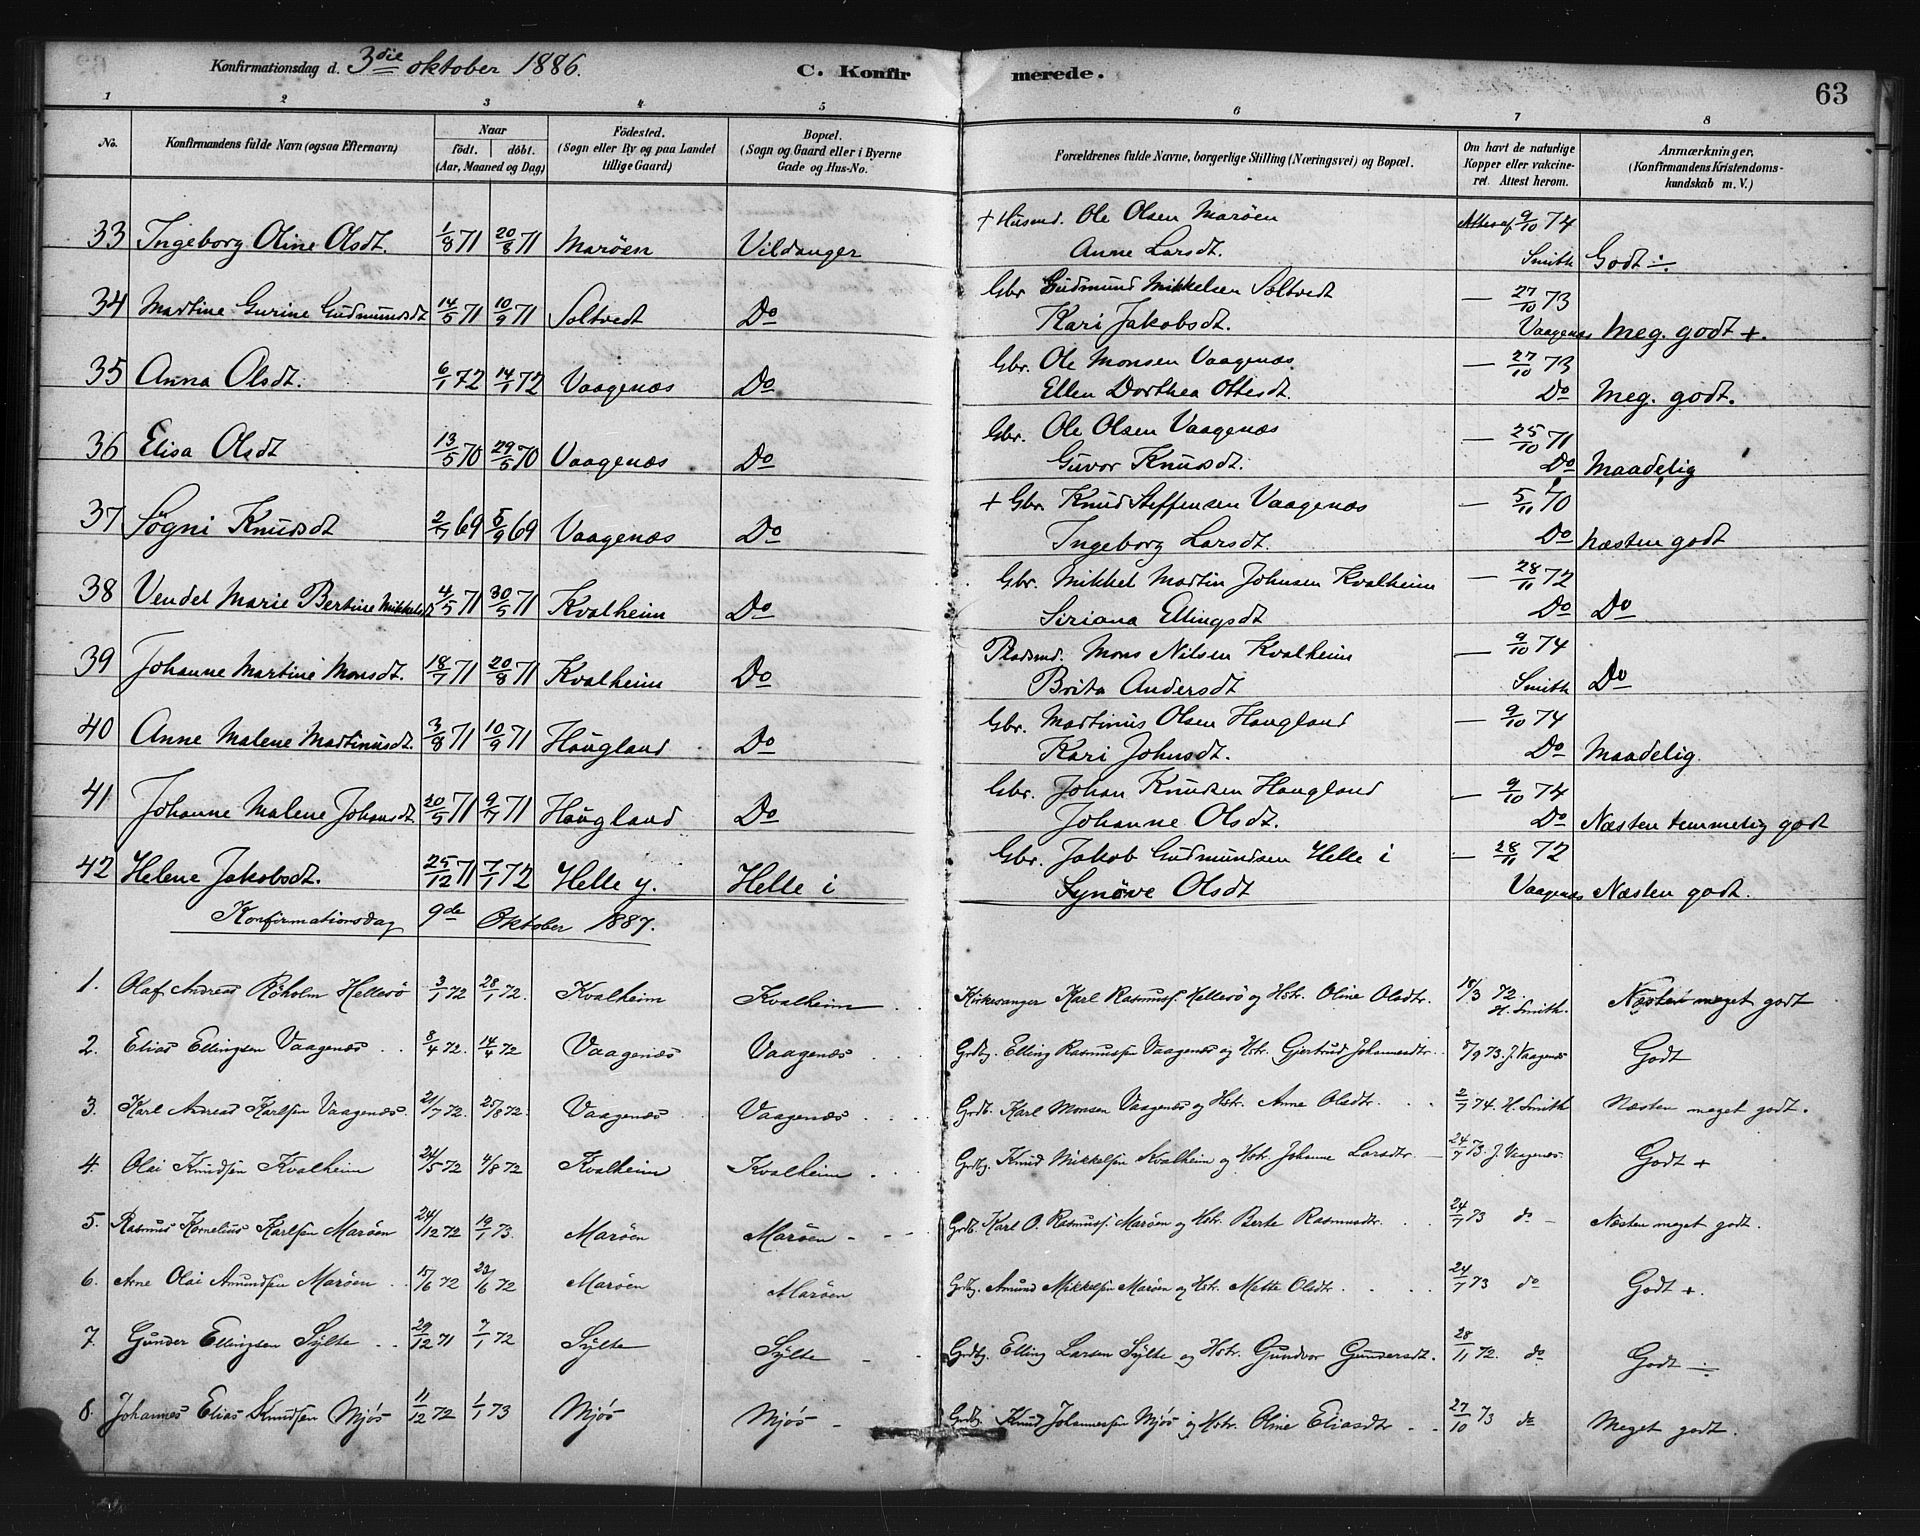 Konfirmationsdag d. 3die oktober 1886. C. Konfirmerede. 63
1 2 3 4 5 6 7 8
No. Konfirmandens fulde Navn (ogsaa Efternavn) Naar født. døbt. (Aar, Maaned og Dag) Fødested. (Sogn eller By og paa Landet tillige Gaard) Bopæl. (Sogn og Gaard eller i Byerne Gade og Hus-No. Forældrenes fulde Navne, borgerlige Stilling (Næringsvei) og Bopæl. Om havt de naturlige Kopper eller vakcineret. Attest herom. Anmærkninger, (Konfirmandens Kristendomskundskab m. V.)
33 Ingeborg Oline Olsdt. 1/8 71 20/8 71 Marøen Vildanger + Husmd. Ole Olsen Marøen 9/10 74
Anne Larsdt. Smith Godt ÷
34 Martine Gurine Gudmundsdt 14/5 71 10/9 71 Soltvedt Do Gbr Gudmund Mikkelsen Soltvedt — 27/10 73
Kari Jakobsdt. Vaagenæs Meg. godt +.
35 Anna Olsdt. 6/1 72 14/1 72 Vaagenæs Do Gbr. Ole Monsen Vaagenæs — 27/10 73
Ellen Dorthea Ottesdt. Do Meg. godt.
36 Elisa Olsdt 13/5 70 29/5 70 Vaagenæs Do Gbr. Ole Olsen Vaagenæs — 25/10 71
Guvor Knudsdt. Do Maadelig
37 Søgni Knudsdt 69 5/9 69 Vaagenæs Do + Gbr. Knud Steffensen Vaagenæs — 5/11 70
Ingeborg Larsdt. Do Næsten godt
38 Vendel Marie Bertine Mikkelsdt 4/5 71 30/5 71 Kvalheim Do Gbr. Mikkel Martin Johnsen Kvalheim — 28/11 72
Siriana Ellingsdt Do Do
39 Johanne Martine Monsdt. 18/7 71 20/8 71 Kvalheim Do Pladsmd. Mons Nilsen Kvalheim — 9/10 74
Brita Andersdt Smith Do
40 Anne Malene Martinusdt. 3/8 71 10/9 71 Haugland Do Gbr. Martinus Olsen Haugland — 9/10 74
Kari Johnsdt. Do Maadelig.
41 Johanne Malene Johansdt 20/5 71 9/7 71 Haugland Do Gbr. Johan Knudsen Haugland — 9/10 74
Johanne Olsdt. Do Næsten temmelig godt
42 Helene Jakobsdt. 25/12 71 7/1 72 Helle y. Helle i Gbr. Jakob Gudmundsen Helle i — 28/11 72
Synøve Olsdt Vaagenæs Næsten godt.
Konfirmationsdag 9de Oktober 1887.
1. Olaf Andreas Røholm Hellesø 3/1 72 28/1 72. Kvalheim Kvalheim Kirkesanger Karl Rasmuss. Hellesø og Hstr. Oline Olsdtr. 18/3 72. H. Smith. Næsten meget godt
2. Elias Ellingsen Vaagenæs 8/4 72. 14/4 72 Vaagenæs Vaagenæs Grdbg. Elling Rasmussen Vaagenæs og Hstr. Gjertrud Johannesdtr. 8/9 73. J. Vaagenæs Godt
3. Karl Andreas Karlsen Vaagenæs. 21/7 72. 25/8 72. Vaagenæs Vaagenæs Grdb. Karl Monsen Vaagenæs og Hstr. Anne Olsdtr. 2/7 74. H. Smith Næsten meget godt.
4. Olai Knudsen Kvalheim 24/5 72 4/8 72 Kvalheim Kvalheim Grdbg. Knud Mikkelsen Kvalheim og Hstr. Johanne Larsdtr. 24/7 73. J. Vaagenæs. Godt +
5. Rasmus Kornelius Karlsen Marøen 24/12 72 19/1 73. Marøen Marøen Grdb. Karl O. Rasmuss. Marøen og Hstr. Berte Rasmusdtr. 24/7 73 do Næsten meget godt.
6. Arne Olai Amundsen Marøen 15/6 72 23/6 72 Marøen Marøen Grdbg. Amund Mikkelsen Marøen og Hstr. Mette Olsdtr. 24/7 73 do Godt +.
7. Gunder Ellingsen Sylte 29/12 71 7/1 72 Sylte Sylte Grdbg. Elling Larsen Sylte og Hstr. Gundvor Gundersdt. 28/11 72. do Godt ÷
8. Johannes Elias Knudsen Mjøs 11/12 72 1/1 73 Mjøs Mjøs Grdbg. Knud Johannessen Mjøs og Hstr. Oline Eliasdtr 27/10 73 do Meget godt.